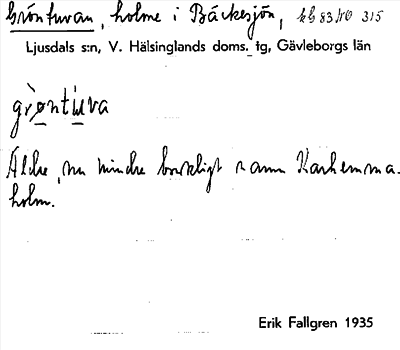 Gröntuvan, holme i Bäckesjön,
Ljusdals s:n, V. Hälsinglands doms. tg, Gävleborgs län
grøntuva
Äldre, nu mindre brukligt namn Karhemma-
holm.
Erik Fallgren 1935